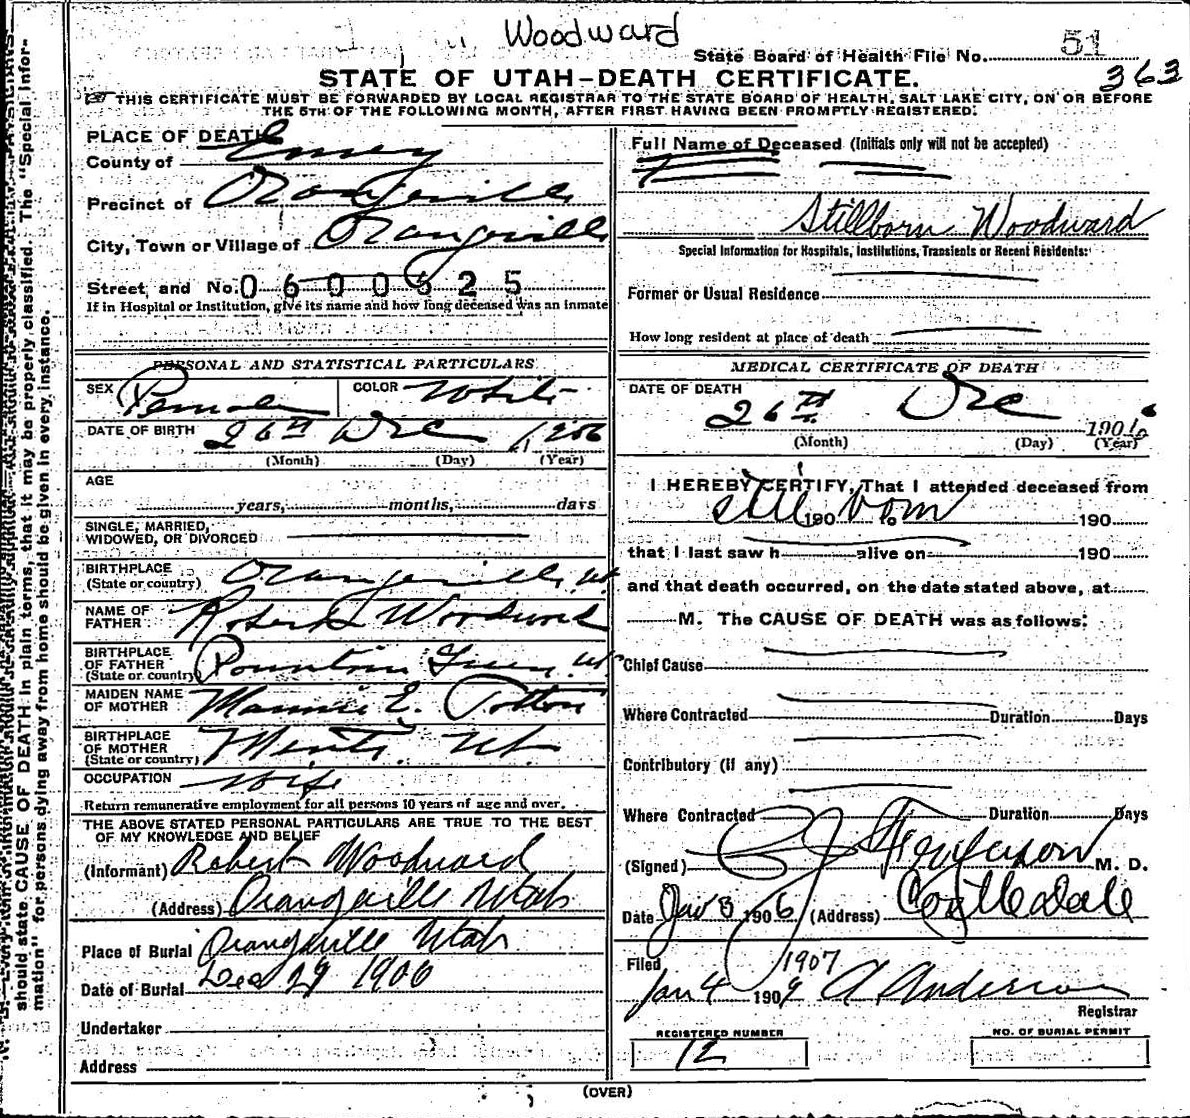 Woodward
State Board of Health File No. 51
363
STATE OF UTAH—DEATH CERTIFICATE.
THIS CERTIFICATE MUST BE FORWARDED BY LOCAL REGISTRAR TO THE STATE BOARD OF HEALTH, SALT LAKE CITY, ON OR BEFORE
THE 5TH OF THE FOLLOWING MONTH, AFTER FIRST HAVING BEEN PROMPTLY REGISTERED.
should state CAUSE OF DEATH in plain terms, that it may be properly classified. The "Special Infor-
mation" for persons dying away from home should be given in every instance.
PLACE OF DEATH
County of Emery
Precinct of Orangeville
City, Town or Village of Orangeville
Street, and No. 0600625
If in Hospital or Institution, give its name and how long deceased was an inmate
PERSONAL AND STATISTICAL PARTICULARS
SEX Female COLOR White
DATE OF BIRTH 26th Dec 1906
(Month) (Day) (Year)
AGE
years, months, days
SINGLE, MARRIED,
WIDOWED, OR DIVORCED
BIRTHPLACE
(State or country) Orangeville Ut
NAME OF
FATHER Robert Woodward
BIRTHPLACE
OF FATHER
(State or country) Fountain Green Ut
MAIDEN NAME
OF MOTHER Mannie E.
BIRTHPLACE
OF MOTHER
(State or country) Ut
OCCUPATION Wife
Return remunerative employment for all persons 10 years of age and over.
THE ABOVE STATED PERSONAL PARTICULARS ARE TRUE TO THE BEST
OF MY KNOWLEDGE AND BELIEF
(Informant) Robert Woodward
(Address) Orangeville Utah
Place of Burial Orangeville Utah
Date of Burial Dec 29 1906
Undertaker
Address
Full Name of Deceased (Initials only will not be accepted)
Stillborn Woodward
Special Information for Hospitals, Institutions, Transients or Recent Residents:
Former or Usual Residence
How long resident at place of death
MEDICAL CERTIFICATE OF DEATH
DATE OF DEATH
26th Dec 1906
(Month) (Day) (Year)
I HEREBY CERTIFY, That I attended deceased from
still born 190 to 190
that I last saw h alive on 190
and that death occurred, on the date stated above, at
M. The CAUSE OF DEATH was as follows:
Chief Cause
Where Contracted Duration Days
Contributory (if any)
Where Contracted Duration Days
(Signed) Ferguson M. D.
Date Jan 3 1906 (Address) Castledale
Filed 1907
Jan 4 1909 A Anderson
Registrar
REGISTERED NUMBER
12
NO. OF BURIAL PERMIT
(OVER)